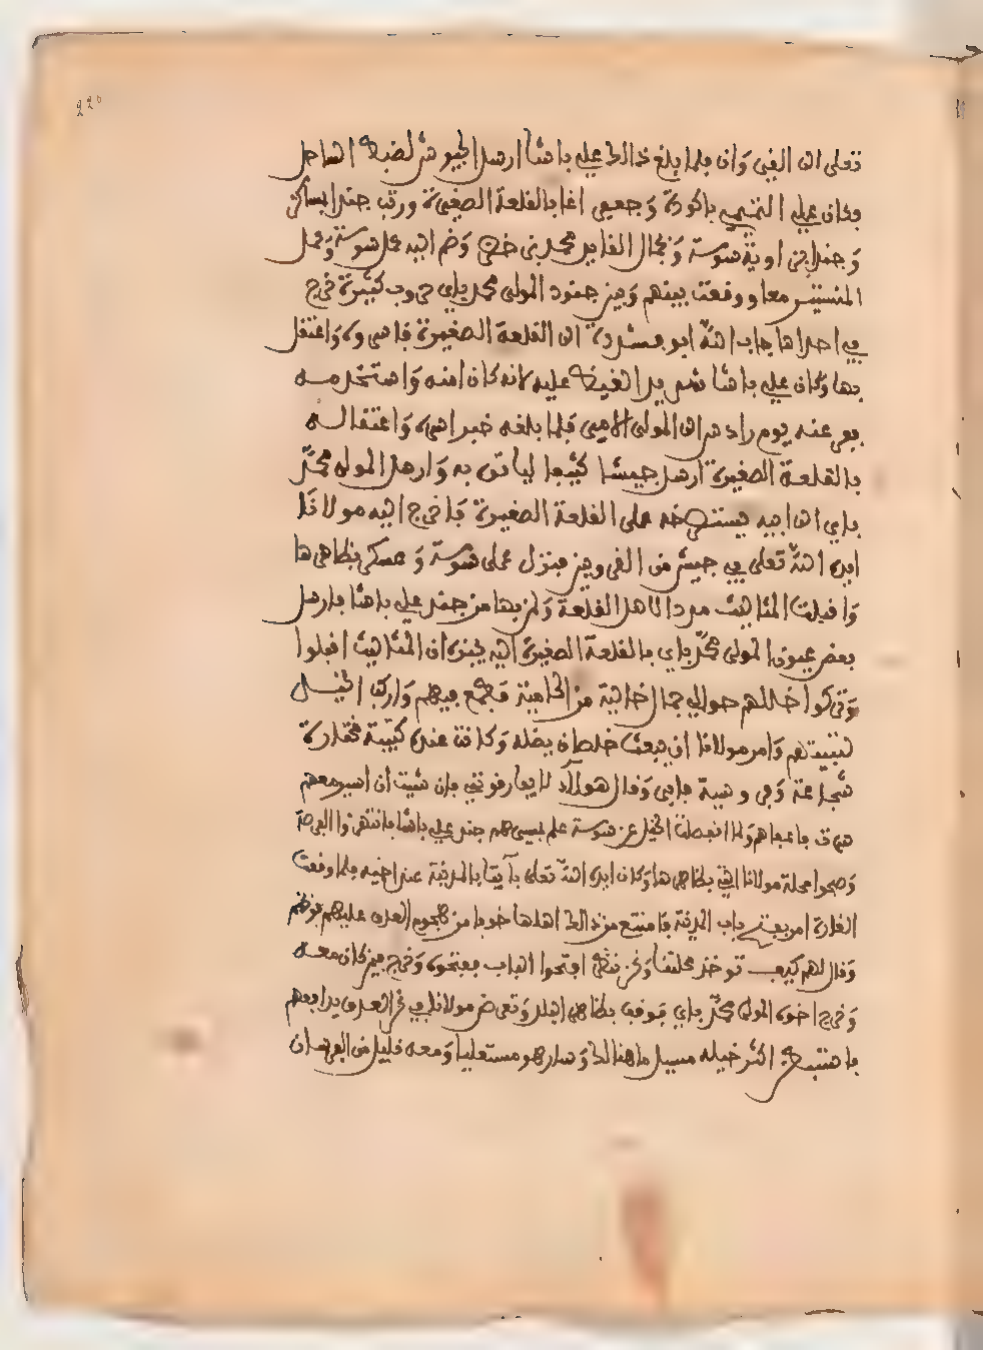 220
تعلى الى القيروان فلما بلغ ذالك علي باشا ارسل الجيوش لضبط الساحل
فكان علي التميمي باكودة وجعفر اغا بالقلعة الصغيرة ورتب جندا بمساكن
وجندا في اوية سوسة وبجمال القايد محمد بن خضر وضم اليه عمل سوسة وعمل
المنستير معا ووقعت بينهم وبين جنود المولى محمد باي حروب كثيرة خرج
في احداها جاب الله ابو مشردة الى القلعة الصغيرة فاسروه واعتقل
بها وكان علي باشا شديد الغيظ عليه لانه كان امنه واستخدمه
ففر عنه يوم رادس الى المولى الامير فلما بلغه خبر اسره واعتقاله
بالقلعة الصغيرة ارسل جيشا كثيفا لياتوه به وارسل المولى محمد
باي الى ابيه يستصرخه على القلعة الصغيرة فاخرج اليه مولانا
ايده الله تعلى في جيش من القيروان فنزل على سوسة وعسكر بظاهرها
واقبلت المثاليث مددا لاهل القلعة ولمن بها من جند علي باشا فارسل
بعض عيون المولى محمد باي بالقلعة الصغيرة اليه يخبره ان المثاليث اقبلوا
وتركوا خللهم حوالي جمال خالية من الحامية فجمع فيهم واركب الخيل
لتبييتهم وامر مولانا ان يبعث خلصان بضله وكانت عنده كتيبة مختارة
شجاعة وفروسية فابى وقال هولاء لا يفارقونني فان شئت ان اسير معهم
سرت فاعفاهم ولما انفصلت الخيل عن سوسة علم بمسيرهم جند علي باشا فانتهزوا الفرصة
وصبحوا محلة مولانا التي بظاهرها وكان ايده الله تعلى بائتا بالمدينة عند اخيه فلما وقعت
الغارة امر بفتح باب المدينة فامتنع من ذالك اهلها خوفا من هجوم العدو عليهم
وقال لهم كيف توخذ محلتنا ونحن ننظر افتحوا الباب ففتحوه وخرج فيمن كان معه
وخرج اخوه المولى محمد باي فوقف بظاهر البلد وتعرض مولانا في نحر العدو يدافعهم
فاستبطح اكثر خيله مسيل ما هنالك وسار هو مستعليا ومعه قليل من الفرسان